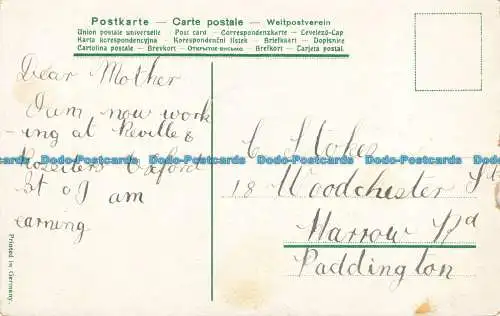 Postkarte – Carte postale – Weltpostverein
Union postale universelle • Post card • Correspondenzkarte • Levelező-Lap
Karta korespondencyjna • Korespondenční lístek • Briefkaart • Dopisnice
Cartolina postale • Brevkort • Открытое письмо • Brefkort • Carjeta postal
Dear Mother
I am now work
-ing at Reville &
Rossiters Oxford
St
I am
earning
C Stokes
18 Woodchester St
Harrow Rd
Paddington
Printed in Germany.
Dodo-Postcards